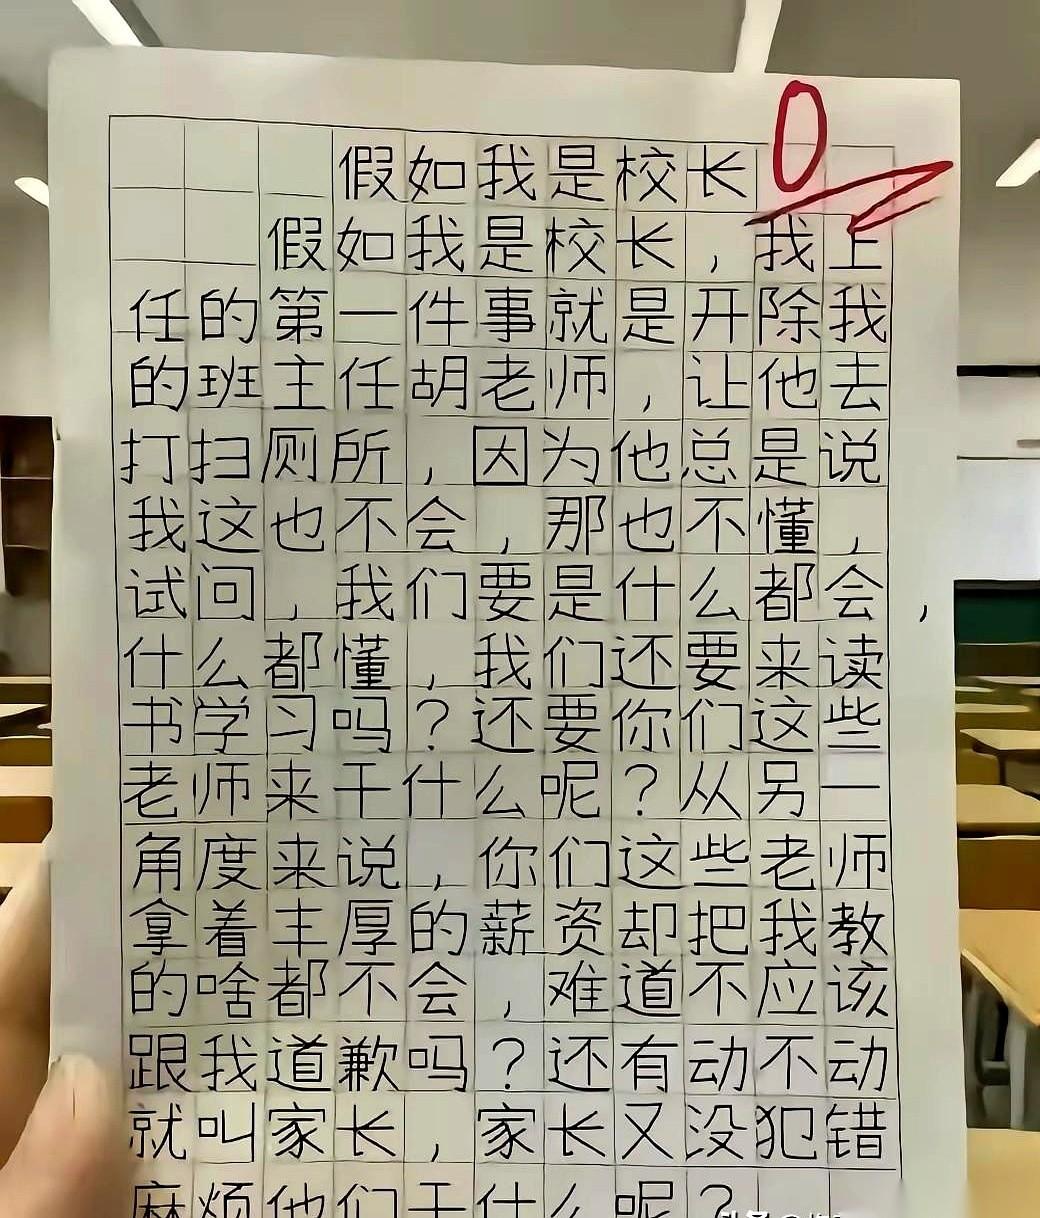 0
假如我是校长
假如我是校长，我上
任的第一件事就是开除我
的班主任胡老师，让他去
打扫厕所，因为他总是说
我这也不会，那也不懂，
试问，我们要是什么都会，
什么都懂，我们还要来读
书学习吗？还要你们这些
老师来干什么呢？从另一
角度来说，你们这些老师
拿着丰厚的薪资却把我教
的啥都不会，难道不应该
跟我道歉吗？还有动不动
就叫家长，家长又没犯错
麻烦他们干什么呢？